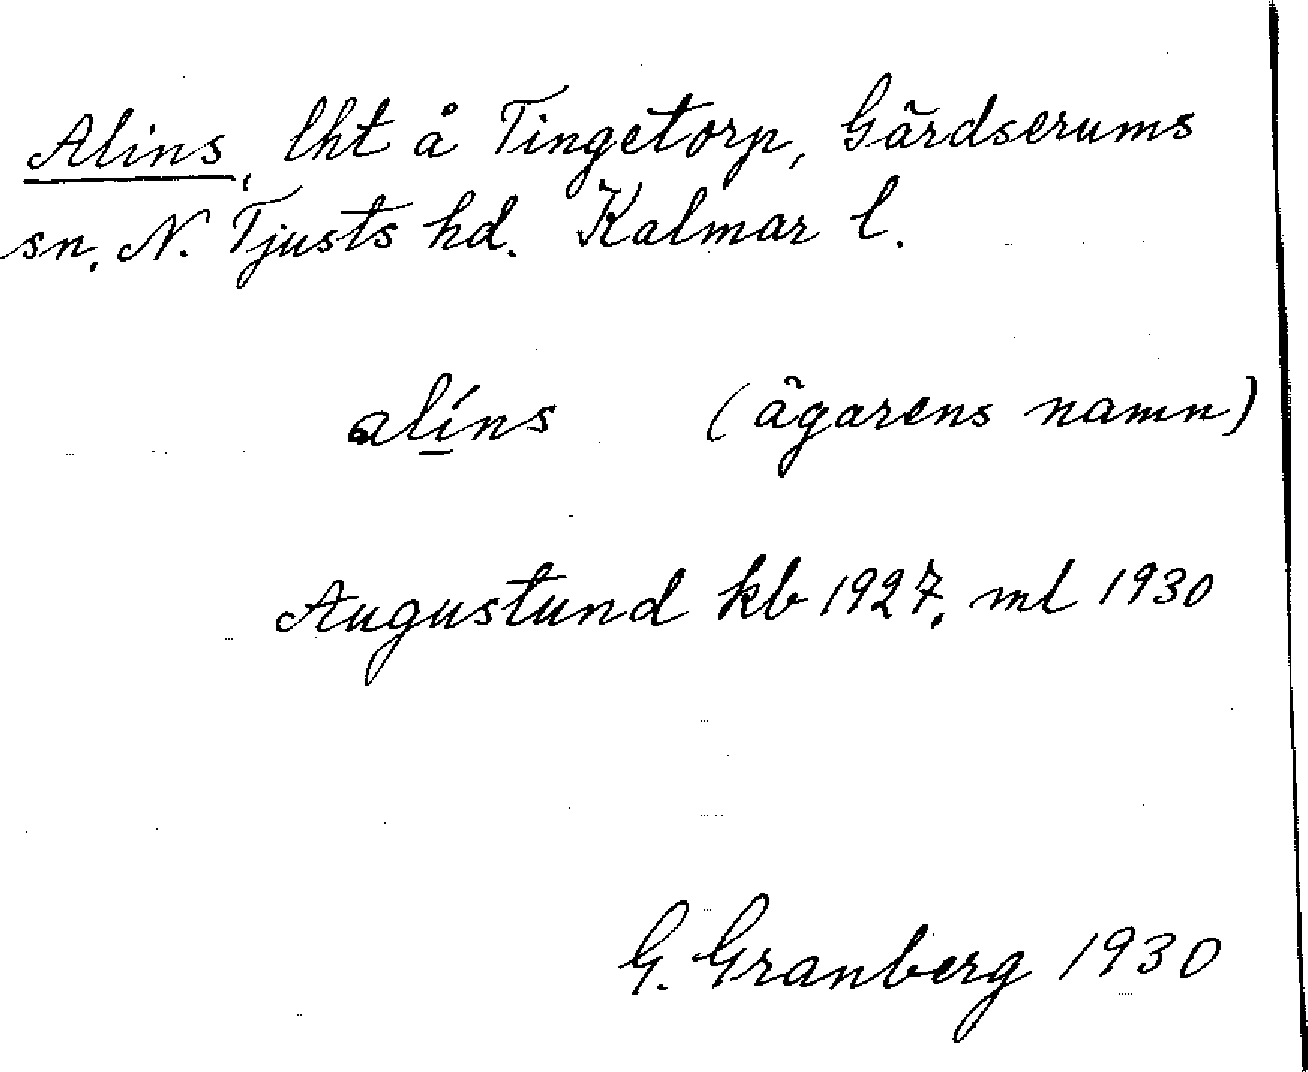 Alins, lht å Tingetorp, Gärdserums
sn. N. Tjusts hd. Kalmar l.
alíns (ägarens namn)
Augustund kb 1927, ml 1930
G. Granberg 1930